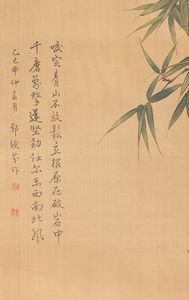 咬定青山不放鬆立根原在破岩中
千磨萬擊還堅勁任尔东西南北風
年仲春月 鄭 芬作